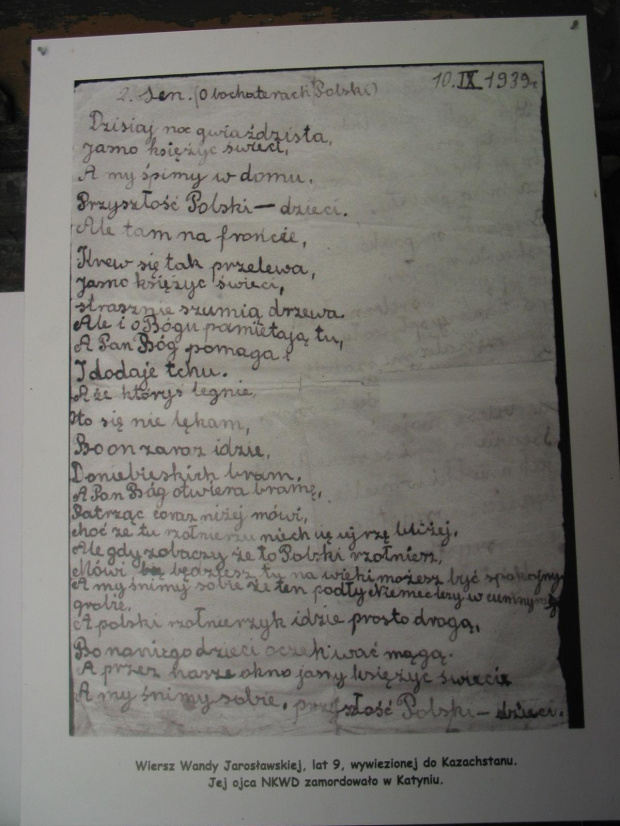 2. Sen. (O bochaterach Polski) 10.IX 1939r
Dzisiaj noc gwiaździsta,
Jasno księżyc świeci,
A my śpimy w domu.
Przyszłość Polski – dzieci.
Ale tam na froncie,
Krew się tak przelewa,
Jasno księżyc świeci,
strasznie szumią drzewa.
Ale i o Bógu pamiętają tu,
A Pan Bóg pomaga!
I dodaje tchu.
A że któryś legnie,
to się nie lękam,
Bo on zaraz idzie,
Do niebieskich bram.
A Pan Bóg otwiera bramę,
Patrząc coraz niżej mówi,
choć że tu rzołnierzu niech cię ujrzę bliżej.
Ale gdy zobaczy że to Polski rzołnierz,
Mówi będziesz tu na wieki możesz być spokojny
A my śnimy sobie że ten podły Niemiec leży w ciemnym
grobie.
A polski rzołnierzyk idzie prosto drogą,
Bo na niego dzieci oczekiwać mągą.
A przez nasze okno jasny księżyc świeci
A my śnimy sobie, przyszłość Polski – dzieci.
Wiersz Wandy Jarosławskiej, lat 9, wywiezionej do Kazachstanu.
Jej ojca NKWD zamordowało w Katyniu.